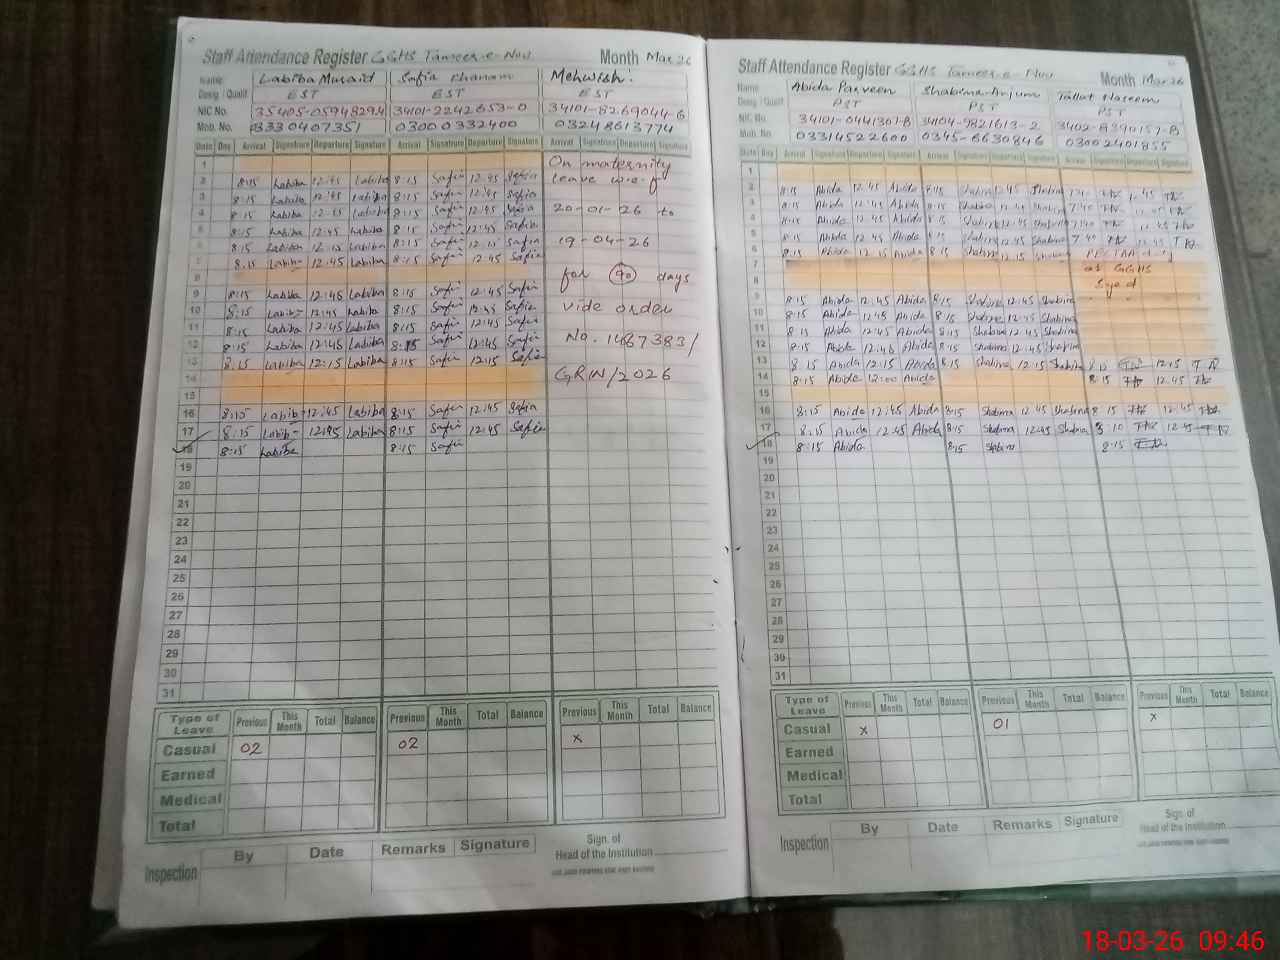 Staff Attendance Register GGHS Tameer-e-Nou Month Mar 26
Name: Labiba Musaid Safia Khanam Mehwish.
Desig / Qualif EST EST
NIC No. 35405-0594829-4 34101-2242653-0 34101-8269044-6
Mob. No. 03330407351 03000332400 03248613774
Date Day Arrival Signature Departure Signature Arrival Signature Departure Signature Arrival Signature Departure Signature
1 On maternity
2 8:15 Labiba 12:45 Labiba 8:15 Safia 12:45 Safia leave w.e.f
3 8:15 Labiba 12:45 Labiba 8:15 Safia 12:45 Safia
4 8:15 Labiba 12:45 Labiba 8:15 Safia 12:45 Safia 20-01-26 to
5 8:15 Labiba 12:45 Labiba 8:15 Safia 12:45 Safia
6 8:15 Labiba 12:15 Labiba 8:15 Safia 12:15 Safia 19-04-26
7 8:15 Labiba 12:45 Labiba 8:15 Safia 12:45 Safia
8 for 90 days
9 8:15 Labiba 12:45 Labiba 8:15 Safia 12:45 Safia
10 8:15 Labiba 12:45 Labiba 8:15 Safia 12:45 Safia vide order
11 8:15 Labiba 12:45 Labiba 8:15 Safia 12:45 Safia
12 8:15 Labiba 12:45 Labiba 8:15 Safia 12:45 Safia No. 1467383/
13 8:15 Labiba 12:15 Labiba 8:15 Safia 12:15 Safia
14 GRW/2026
15
16 8:15 Labiba 12:45 Labiba 8:15 Safia 12:45 Safia
17 8:15 Labiba 12:45 Labiba 8:15 Safia 12:45 Safia
18 8:15 Labiba 8:15 Safia
19
20
21
22
23
24
25
26
27
28
29
30
31
Type of Leave Previous This Month Total Balance Previous This Month Total Balance Previous This Month Total Balance
Casual 02 02 x
Earned
Medical
Total
Inspection By Date Remarks Signature Sign. of
Head of the Institution
Staff Attendance Register GGHS Tameer-e-Nou Month Mar 26
Name Abida Parveen Shabina Anjum Tallat Naseem
Desig / Qualif PST PST PST
NIC No. 34101-0441307-8 34104-9821613-2
Mob. No. 03314522600 0345-6630846 03002401855
Date Day Arrival Signature Departure Signature Arrival Signature Departure Signature Arrival Signature Departure Signature
1
2 8:15 Abida 12:45 Abida 8:15 Shabina 12:45 Shabina
3 8:15 Abida 12:45 Abida 8:15 Shabina 12:45 Shabina 7:40
4 8:15 Abida 12:45 Abida 8:15 Shabina 12:45 Shabina 7:40
5 8:15 Abida 12:45 Abida 8:15 Shabina 12:45 Shabina 7:40 12:45
6 8:15 Abida 12:15 Abida 8:15 Shabina 12:15 Shabina
7 at GGHS
8
9 8:15 Abida 12:45 Abida 8:15 Shabina 12:45 Shabina
10 8:15 Abida 12:45 Abida 8:15 Shabina 12:45 Shabina
11 8:15 Abida 12:45 Abida 8:15 Shabina 12:45 Shabina
12 8:15 Abida 12:45 Abida 8:15 Shabina 12:45 Shabina
13 8:15 Abida 12:15 Abida 8:15 Shabina 12:15 Shabina 8:15 12:15
14 8:15 Abida 12:00 Abida 8:15 12:45
15
16 8:15 Abida 12:45 Abida 8:15 Shabina 12:45 Shabina 8:15 12:45
17 8:15 Abida 12:45 Abida 8:15 Shabina 12:45 Shabina 8:10 12:45
18 8:15 Abida 8:15 Shabina 8:15
19
20
21
22
23
24
25
26
27
28
29
30
31
Type of Leave Previous This Month Total Balance Previous This Month Total Balance Previous This Month Total Balance
Casual x 01 x
Earned
Medical
Total
Inspection By Date Remarks Signature Sign. of
Head of the Institution
18-03-26 09:46